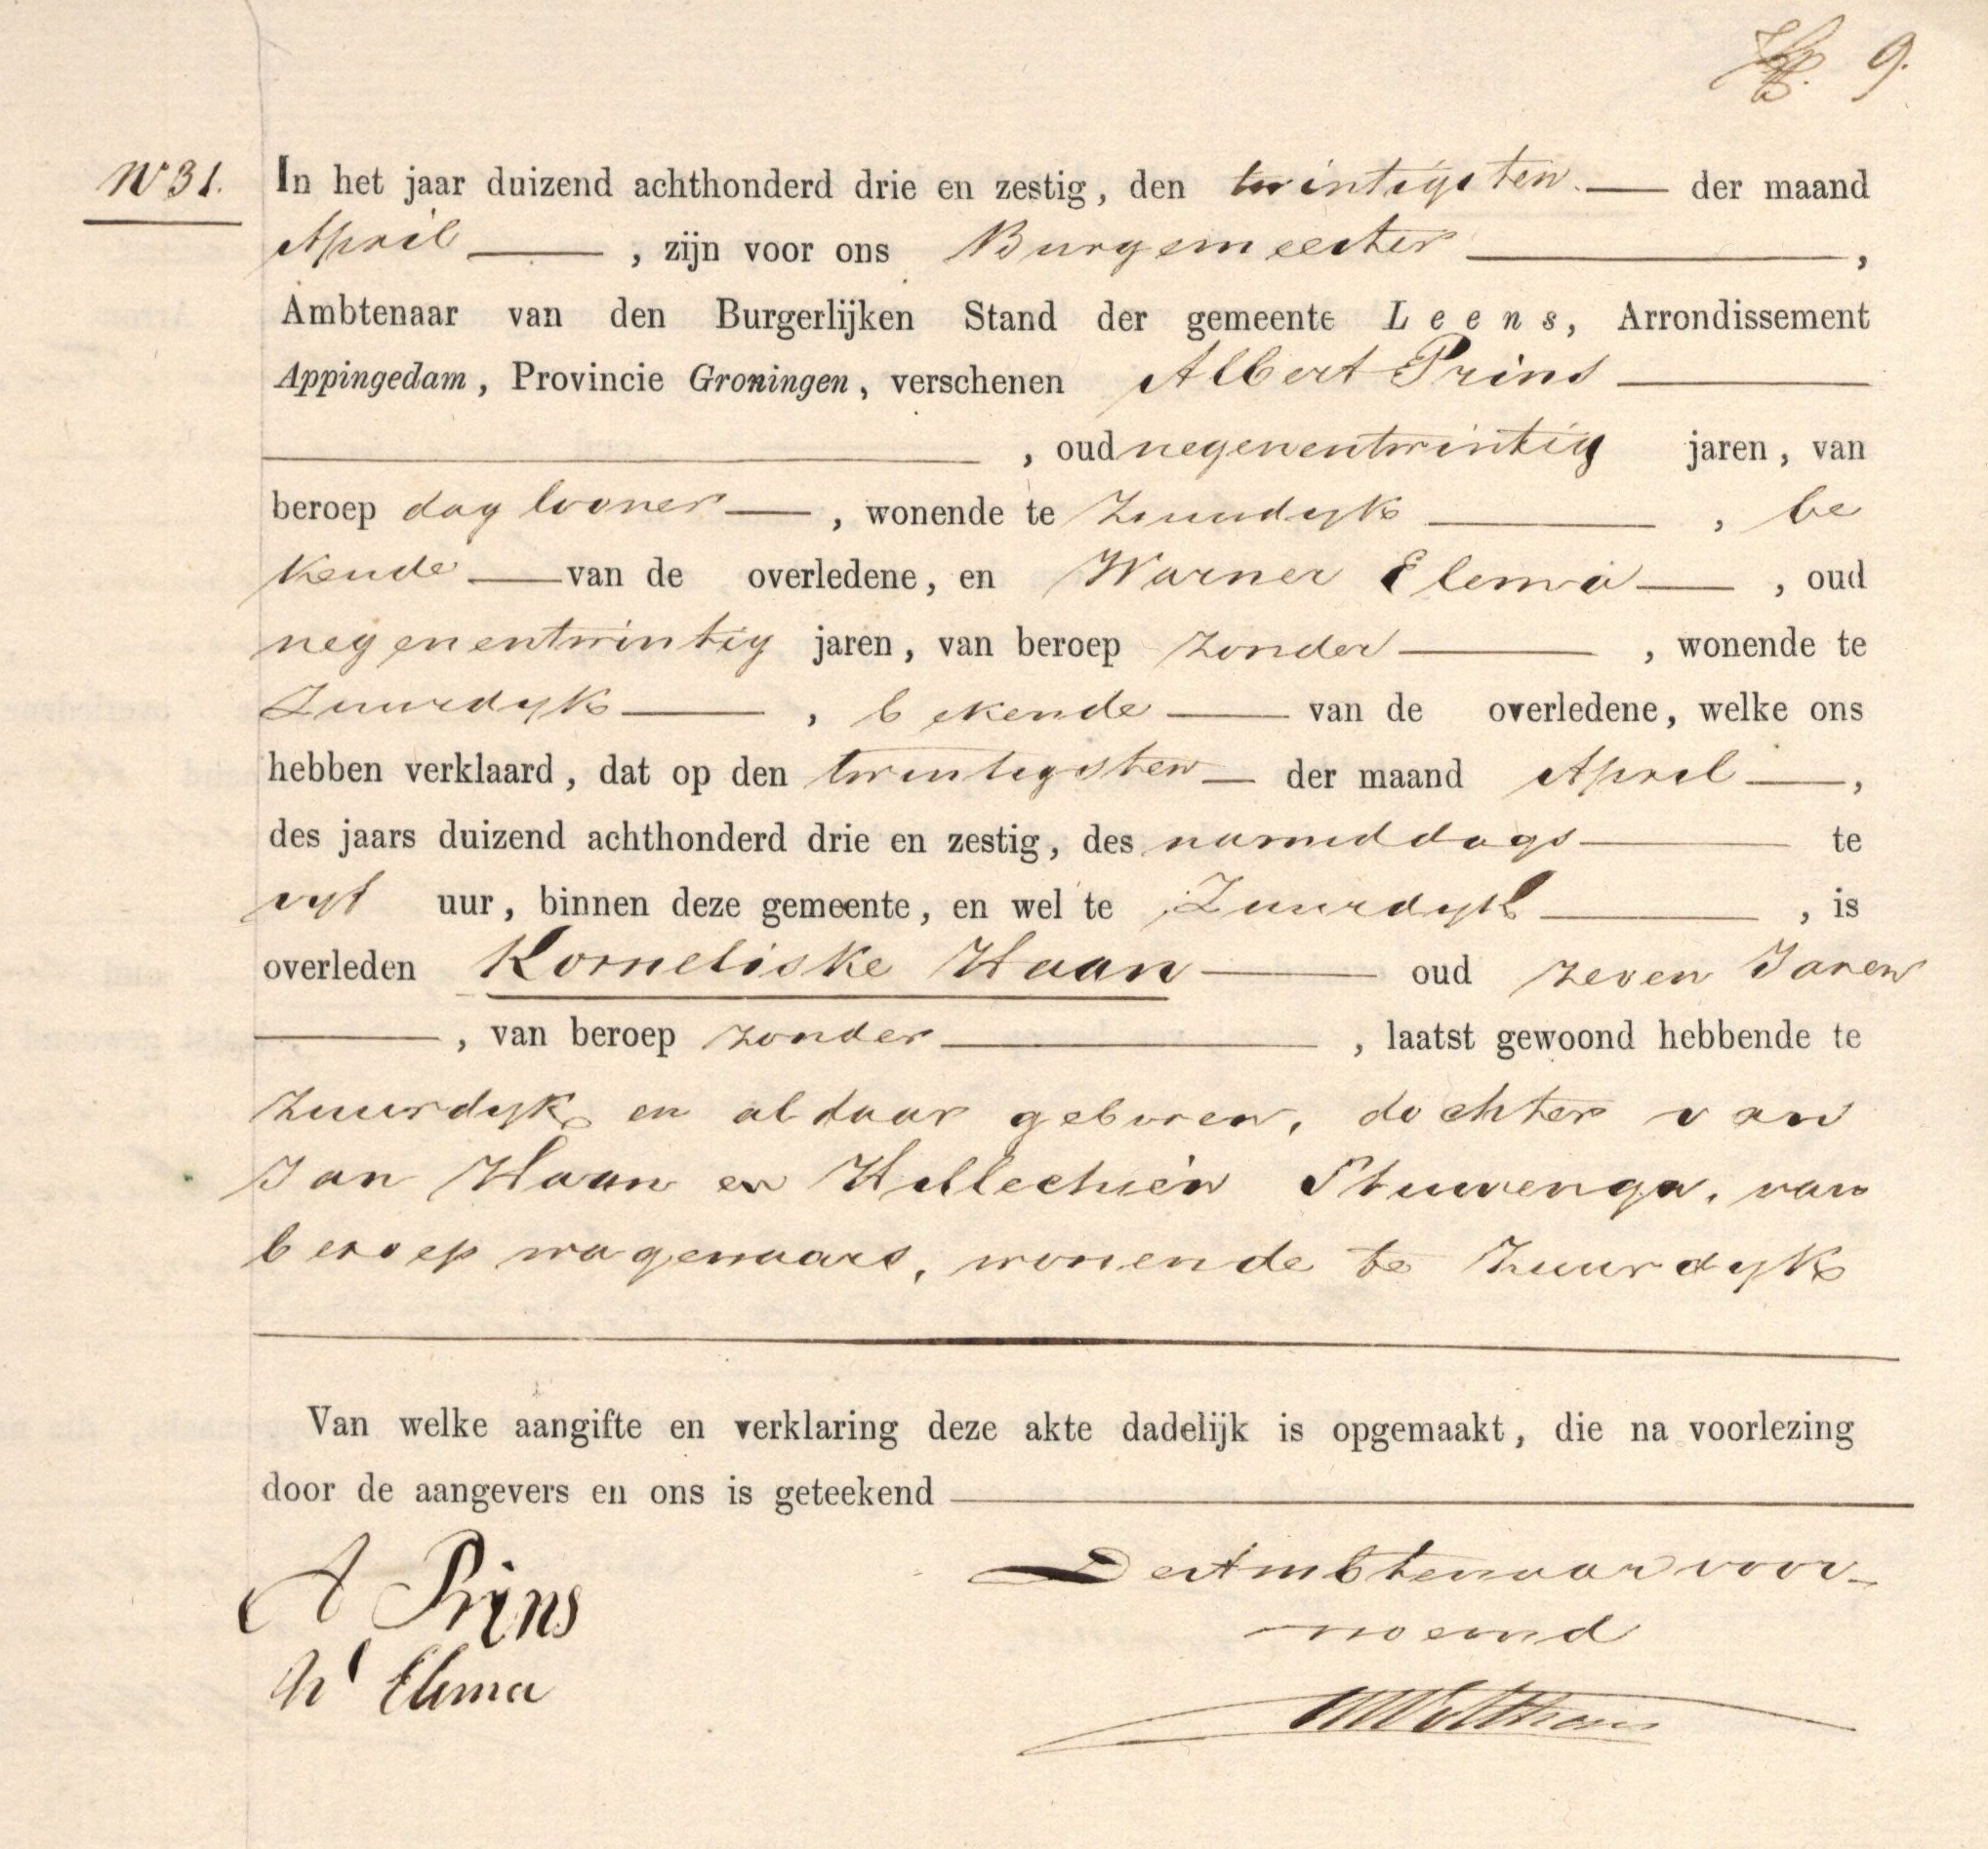 9.
N 31. In het jaar duizend achthonderd drie en zestig, den twintigsten der maand
April, zijn voor ons Burgemeester,
Ambtenaar van den Burgerlijken Stand der gemeente Leens, Arrondissement
Appingedam, Provincie Groningen, verschenen Albert Prins
, oud negenentwintig jaren, van
beroep daglooner, wonende te Zuurdyk, be
kende van de overledene, en Warner Elema, oud
negenentwintig jaren, van beroep zonder, wonende te
Zuurdyk, bekende van de overledene, welke ons
hebben verklaard, dat op den twintigsten der maand April,
des jaars duizend achthonderd drie en zestig, des namiddags te
vyf uur, binnen deze gemeente, en wel te Zuurdyk, is
overleden Korneliske Haan oud zeven Jaren
, van beroep zonder, laatst gewoond hebbende te
Zuurdyk en aldaar geboren, dochter van
Jan Haan en Hillechien Stuivenga, van
beroep wagenaars, wonende te Zuurdyk
Van welke aangifte en verklaring deze akte dadelijk is opgemaakt, die na voorlezing
door de aangevers en ons is geteekend
A Prins
De Ambtenaar voor-
noemd
W Elema